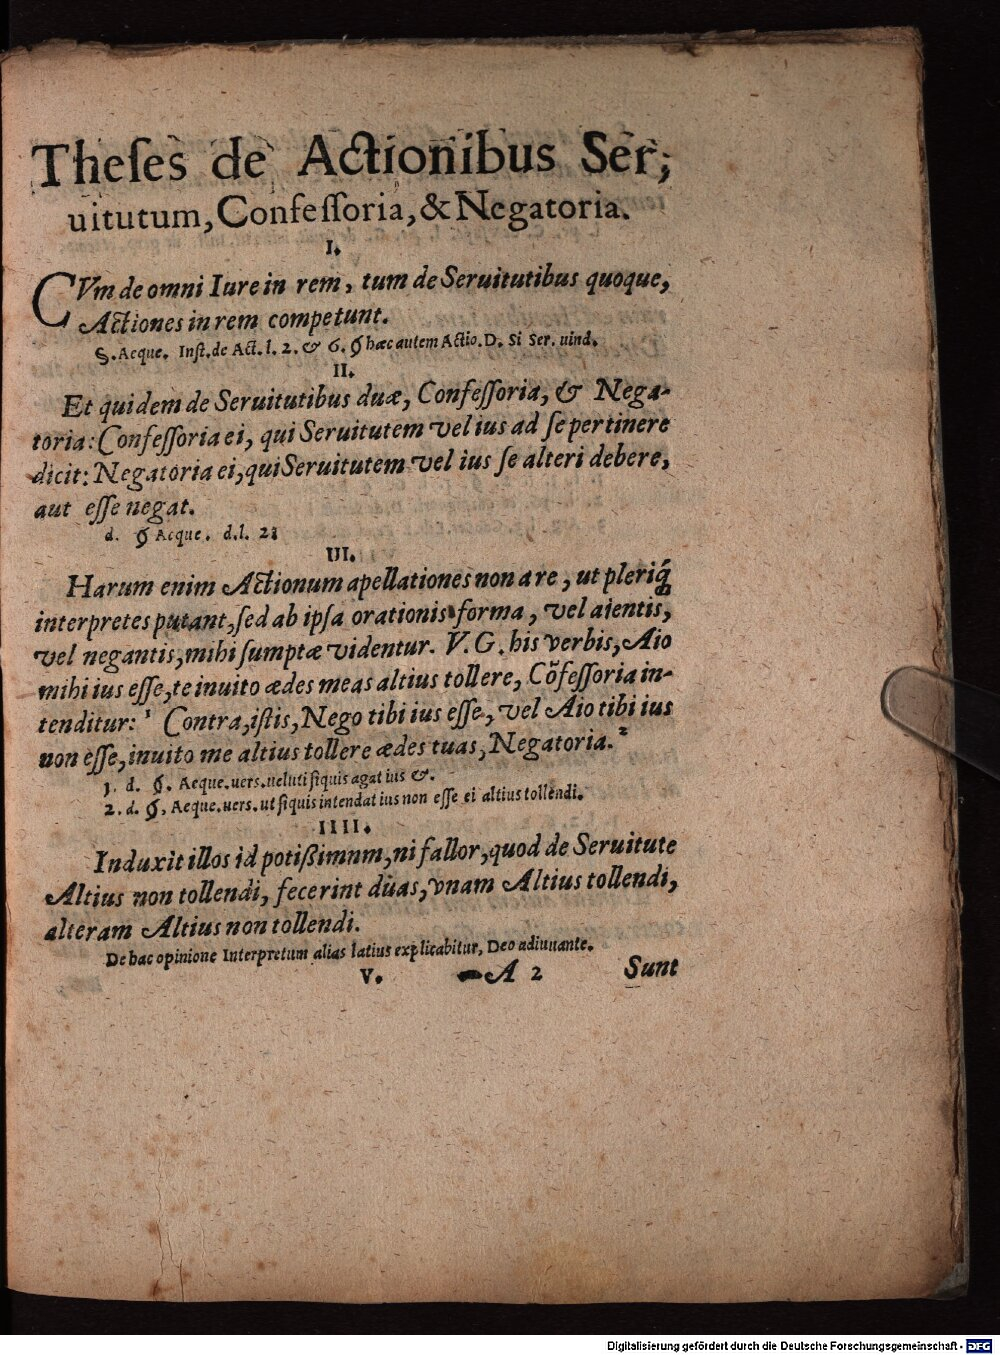 Theses de Actionibus Ser;
uitutum, Confessoria, & Negatoria.
I.
CVm de omni Iure in rem, tum de Seruitutibus quoque,
Actiones in rem competunt.
§. Aeque. Inst. de Act. l. 2. & 6. § haec autem Actio. D. Si Ser. uind.
II.
Et quidem de Seruitutibus duæ, Confessoria, & Nega-
toria: Confessoria ei, qui Seruitutem vel ius ad se pertinere
dicit: Negatoria ei, qui Seruitutem vel ius se alteri debere,
aut esse negat.
d. § Aeque. d. l. 2:
III.
Harum enim Actionum apellationes non a re, ut pleriq́
interpretes putant, sed ab ipsa orationis forma, vel aientis,
vel negantis, mihi sumptæ videntur. V.G. his verbis, Aio
mihi ius esse, te inuito ædes meas altius tollere, Cõfessoria in-
tenditur: ¹ Contra, istis, Nego tibi ius esse, vel Aio tibi ius
non esse, inuito me altius tollere ædes tuas, Negatoria. ²
1. d. §. Aeque. uers. ueluti si quis agat ius &.
2. d. §. Aeque. uers. ut si quis intendat ius non esse ei altius tollendi.
IIII.
Induxit illos id potißimnm, ni fallor, quod de Seruitute
Altius non tollendi, fecerint duas, vnam Altius tollendi,
alteram Altius non tollendi.
De hac opinione Interpretum alias latius explicabitur, Deo adiuuante.
V. A 2 Sunt
Digitalisierung gefördert durch die Deutsche Forschungsgemeinschaft - DFG